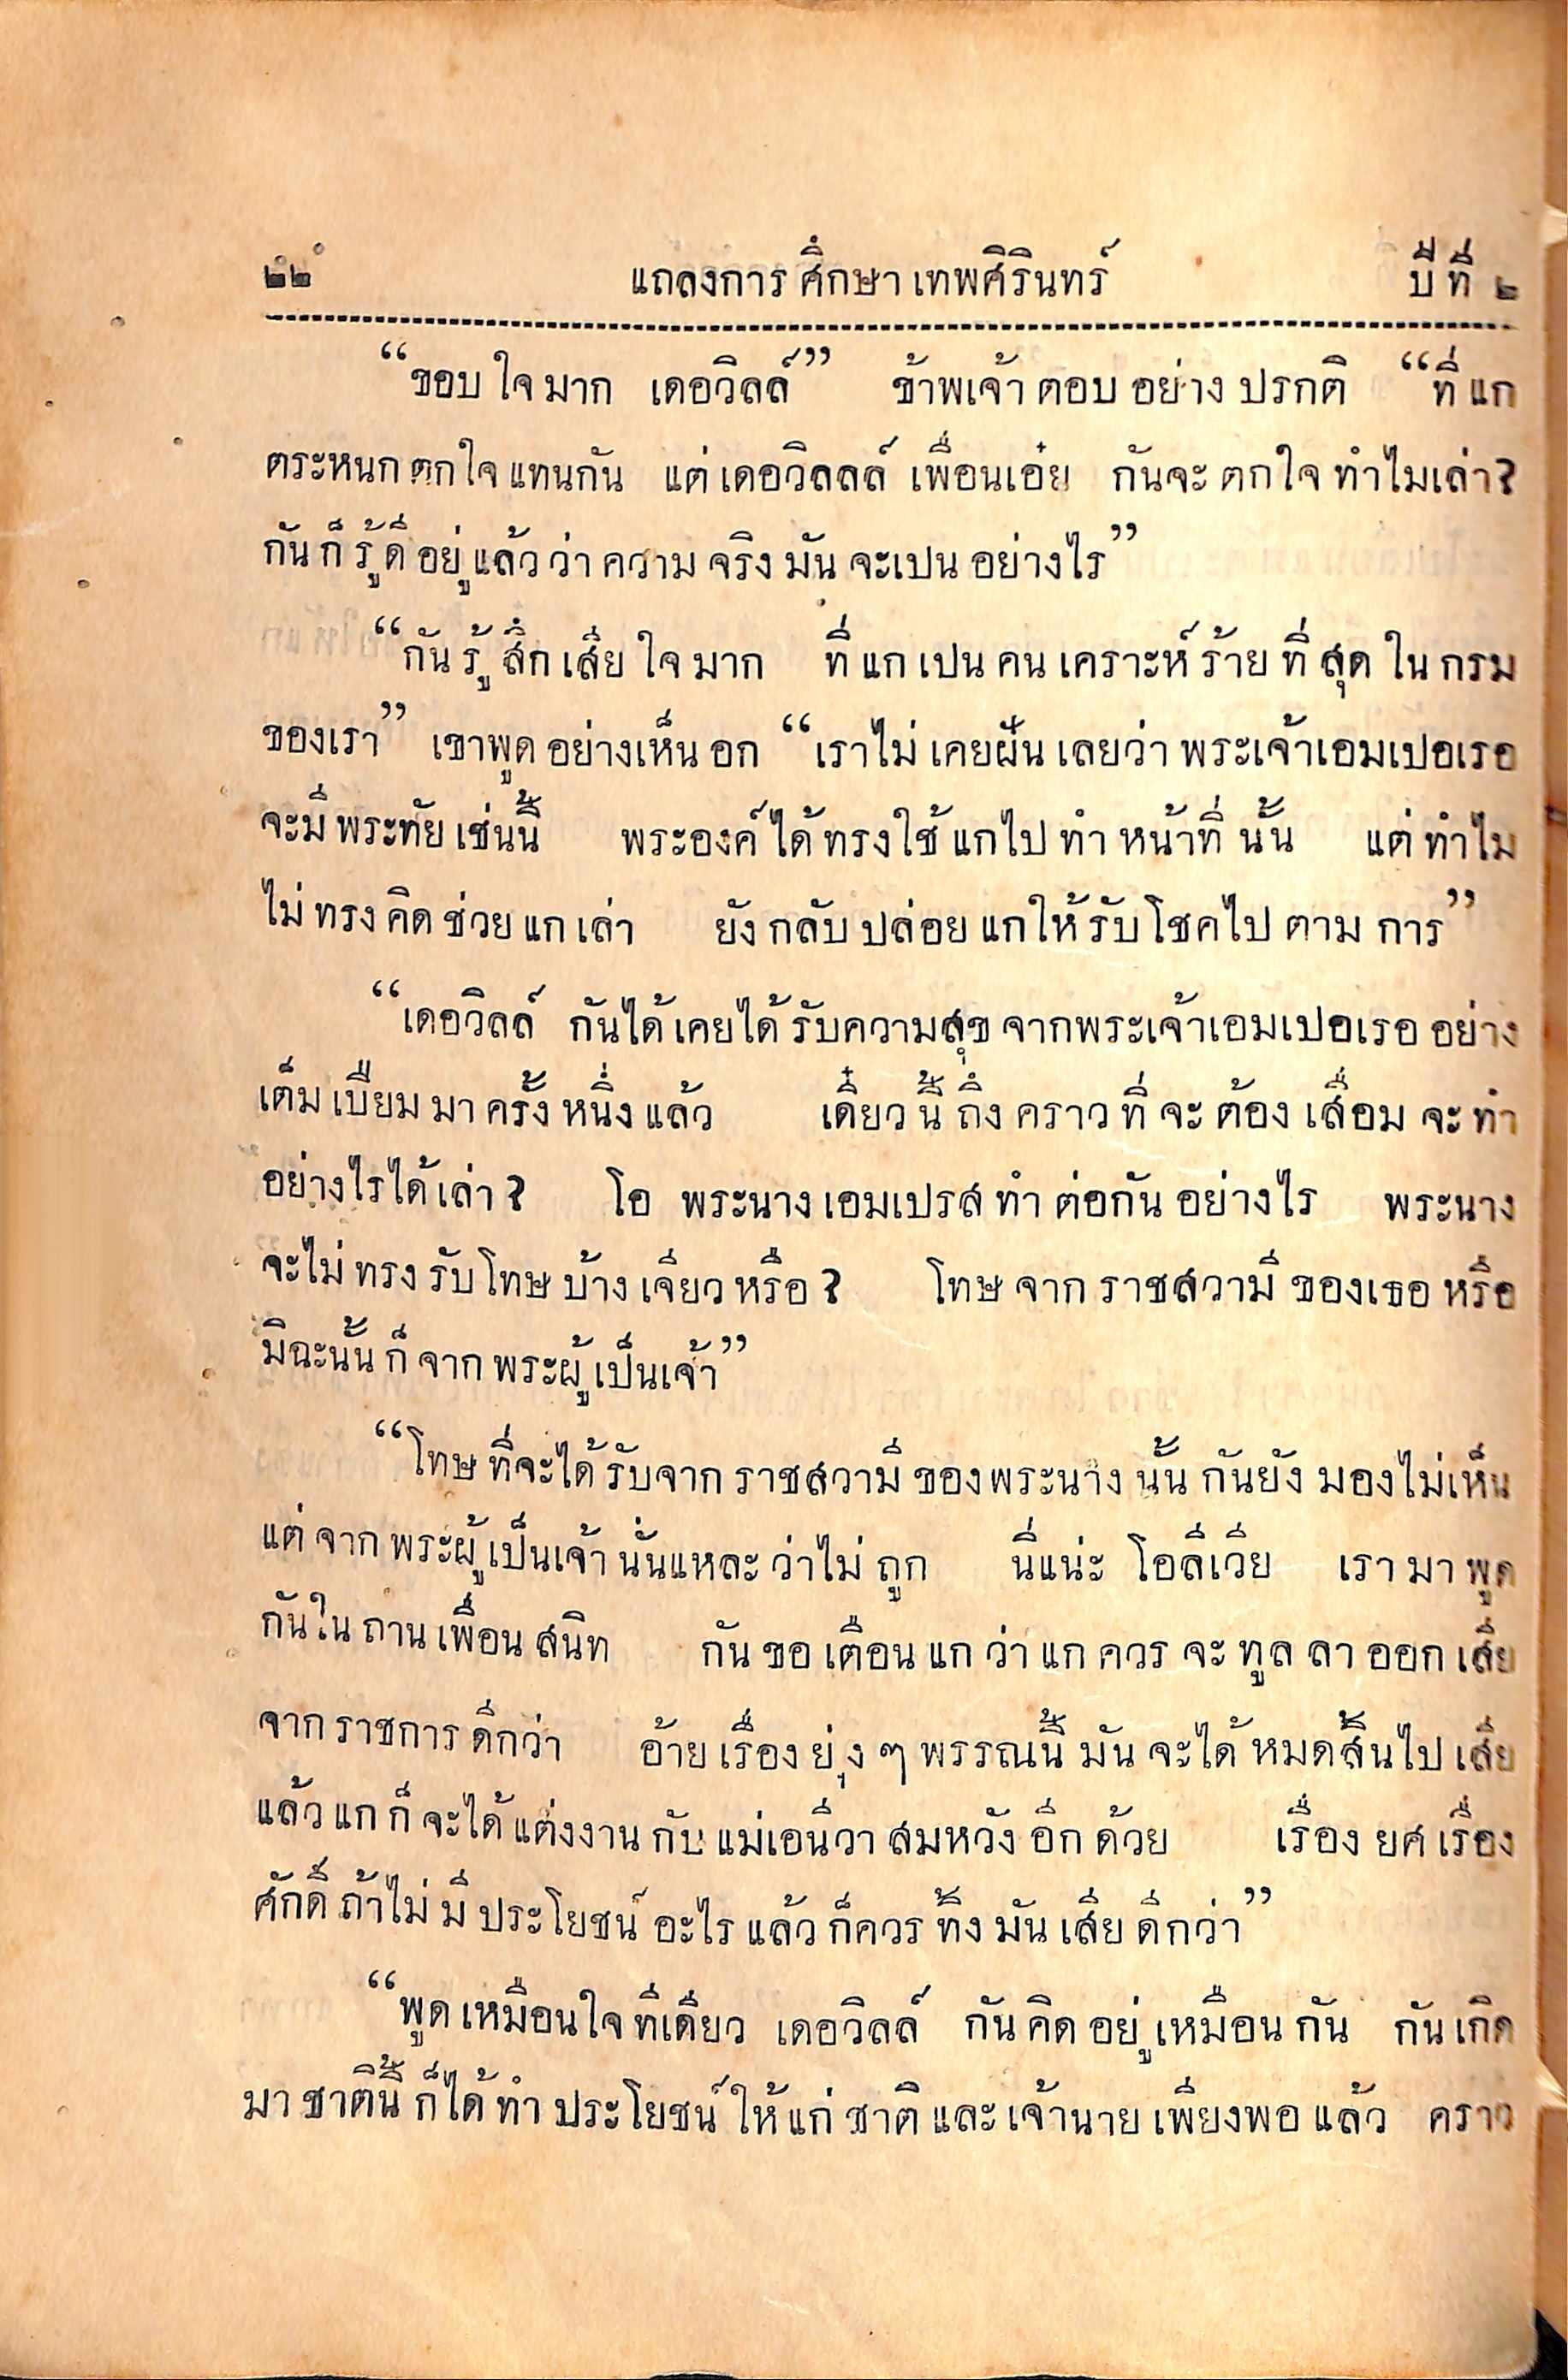 ๒๒ แถลงการศึกษาเทพศิรินทร์ ปีที่ ๒
“ขอบใจมาก เดอวิลล์” ข้าพเจ้าตอบอย่างปรกติ “ที่แก
ตระหนกตกใจแทนกัน แต่เดอวิลลล์ เพื่อนเอ๋ย กันจะตกใจทำไมเล่า?
กันก็รู้ดีอยู่แล้วว่าความจริงมันจะเปนอย่างไร”
“กันรู้สึกเสียใจมาก ที่แกเปนคนเคราะห์ร้ายที่สุดในกรม
ของเรา” เขาพูดอย่างเห็นอก “เราไม่เคยฝันเลยว่าพระเจ้าเอมเปอเรอ
จะมีพระทัยเช่นนี้ พระองค์ได้ทรงใช้แกไปทำหน้าที่นั้น แต่ทำไม
ไม่ทรงคิดช่วยแกเล่า ยังกลับปล่อยแกให้รับโชคไปตามการ”
“เดอวิลล์ กันได้เคยได้รับความสุขจากพระเจ้าเอมเปอเรออย่าง
เต็มเบียมมาครั้งหนึ่งแล้ว เดี๋ยวนี้ถึงคราวที่จะต้องเสื่อมจะทำ
อย่างไรได้เล่า? โอ พระนางเอมเปรสทำต่อกันอย่างไร พระนาง
จะไม่ทรงรับโทษบ้างเจียวหรือ? โทษจากราชสวามีของเธอหรือ
มิฉะนั้นก็จากพระผู้เป็นเจ้า”
“โทษที่จะได้รับจากราชสวามีของพระนางนั้นกันยังมองไม่เห็น
แต่จากพระผู้เป็นเจ้านั่นแหละว่าไม่ถูก นี่แน่ะ โอลีเวีย เรามาพูด
กันในถานเพื่อนสนิท กันขอเตือนแกว่าแกควรจะทูลลาออกเสีย
จากราชการดีกว่า อ้ายเรื่องยุ่งๆพรรณนี้มันจะได้หมดสิ้นไปเสีย
แล้วแกก็จะได้แต่งงานกับแม่เอนีวาสมหวังอีกด้วย เรื่องยศเรื่อง
ศักดิ์ถ้าไม่มีประโยชน์อะไรแล้วก็ควรทิ้งมันเสียดีกว่า”
“พูดเหมือนใจทีเดียว เดอวิลล์ กันคิดอยู่เหมือนกัน กันเกิด
มาชาตินี้ก็ได้ทำประโยชน์ให้แก่ชาติและเจ้านายเพียงพอแล้ว คราว